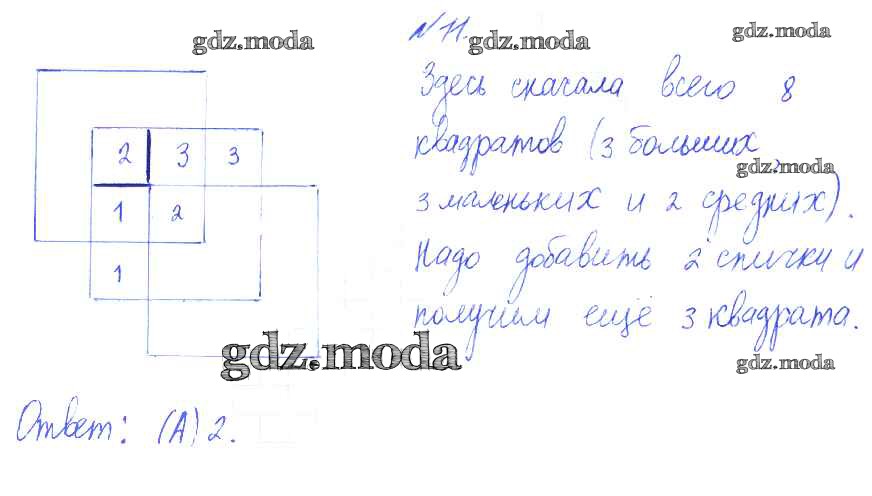 gdz.moda
№ 11.
gdz.moda
gdz.moda
Здесь сначала всего 8
квадратов (3 больших,
gdz.moda
3 маленьких и 2 средних).
Надо добавить 2 спички и
получим ещё 3 квадрата.
2 3 3
1 2
1
gdz.moda
gdz.moda
Ответ: (А) 2.